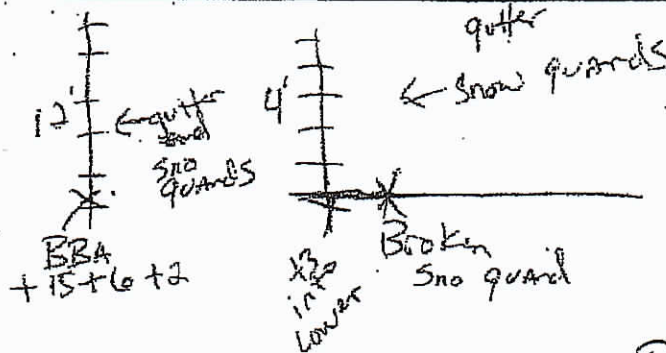 12'
← gutter
and
Sno
guards
BBA
+ 15 + 6 + 2
gutter
4'
← Snow guards
Broken
Sno guard
into
Lower